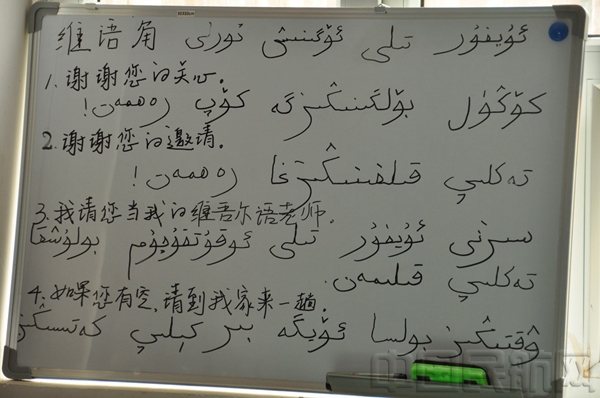 维语角 ئۇيغۇر تىلى ئۆگىنىش ئورنى
1.谢谢您的关心。
كۆڭۈل بۆلگىنىڭىزگە كۆپ رەھمەت!
2.谢谢您的邀请。
تەكلىپ قىلغىنىڭىزغا رەھمەت!
3.我请您当我的维吾尔语老师。
سىزنى ئۇيغۇر تىلى ئوقۇتقۇچۇم بولۇشقا
تەكلىپ قىلىمەن.
4.如果您有空,请到我家来一趟。
ۋقتىڭىز بولسا ئۆيگە بىر كېلىپ كەتسىڭىز
中国民航网